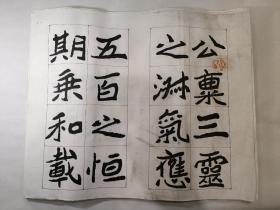 公稟三靈
之淑氣應
五百之恒
期乘和載